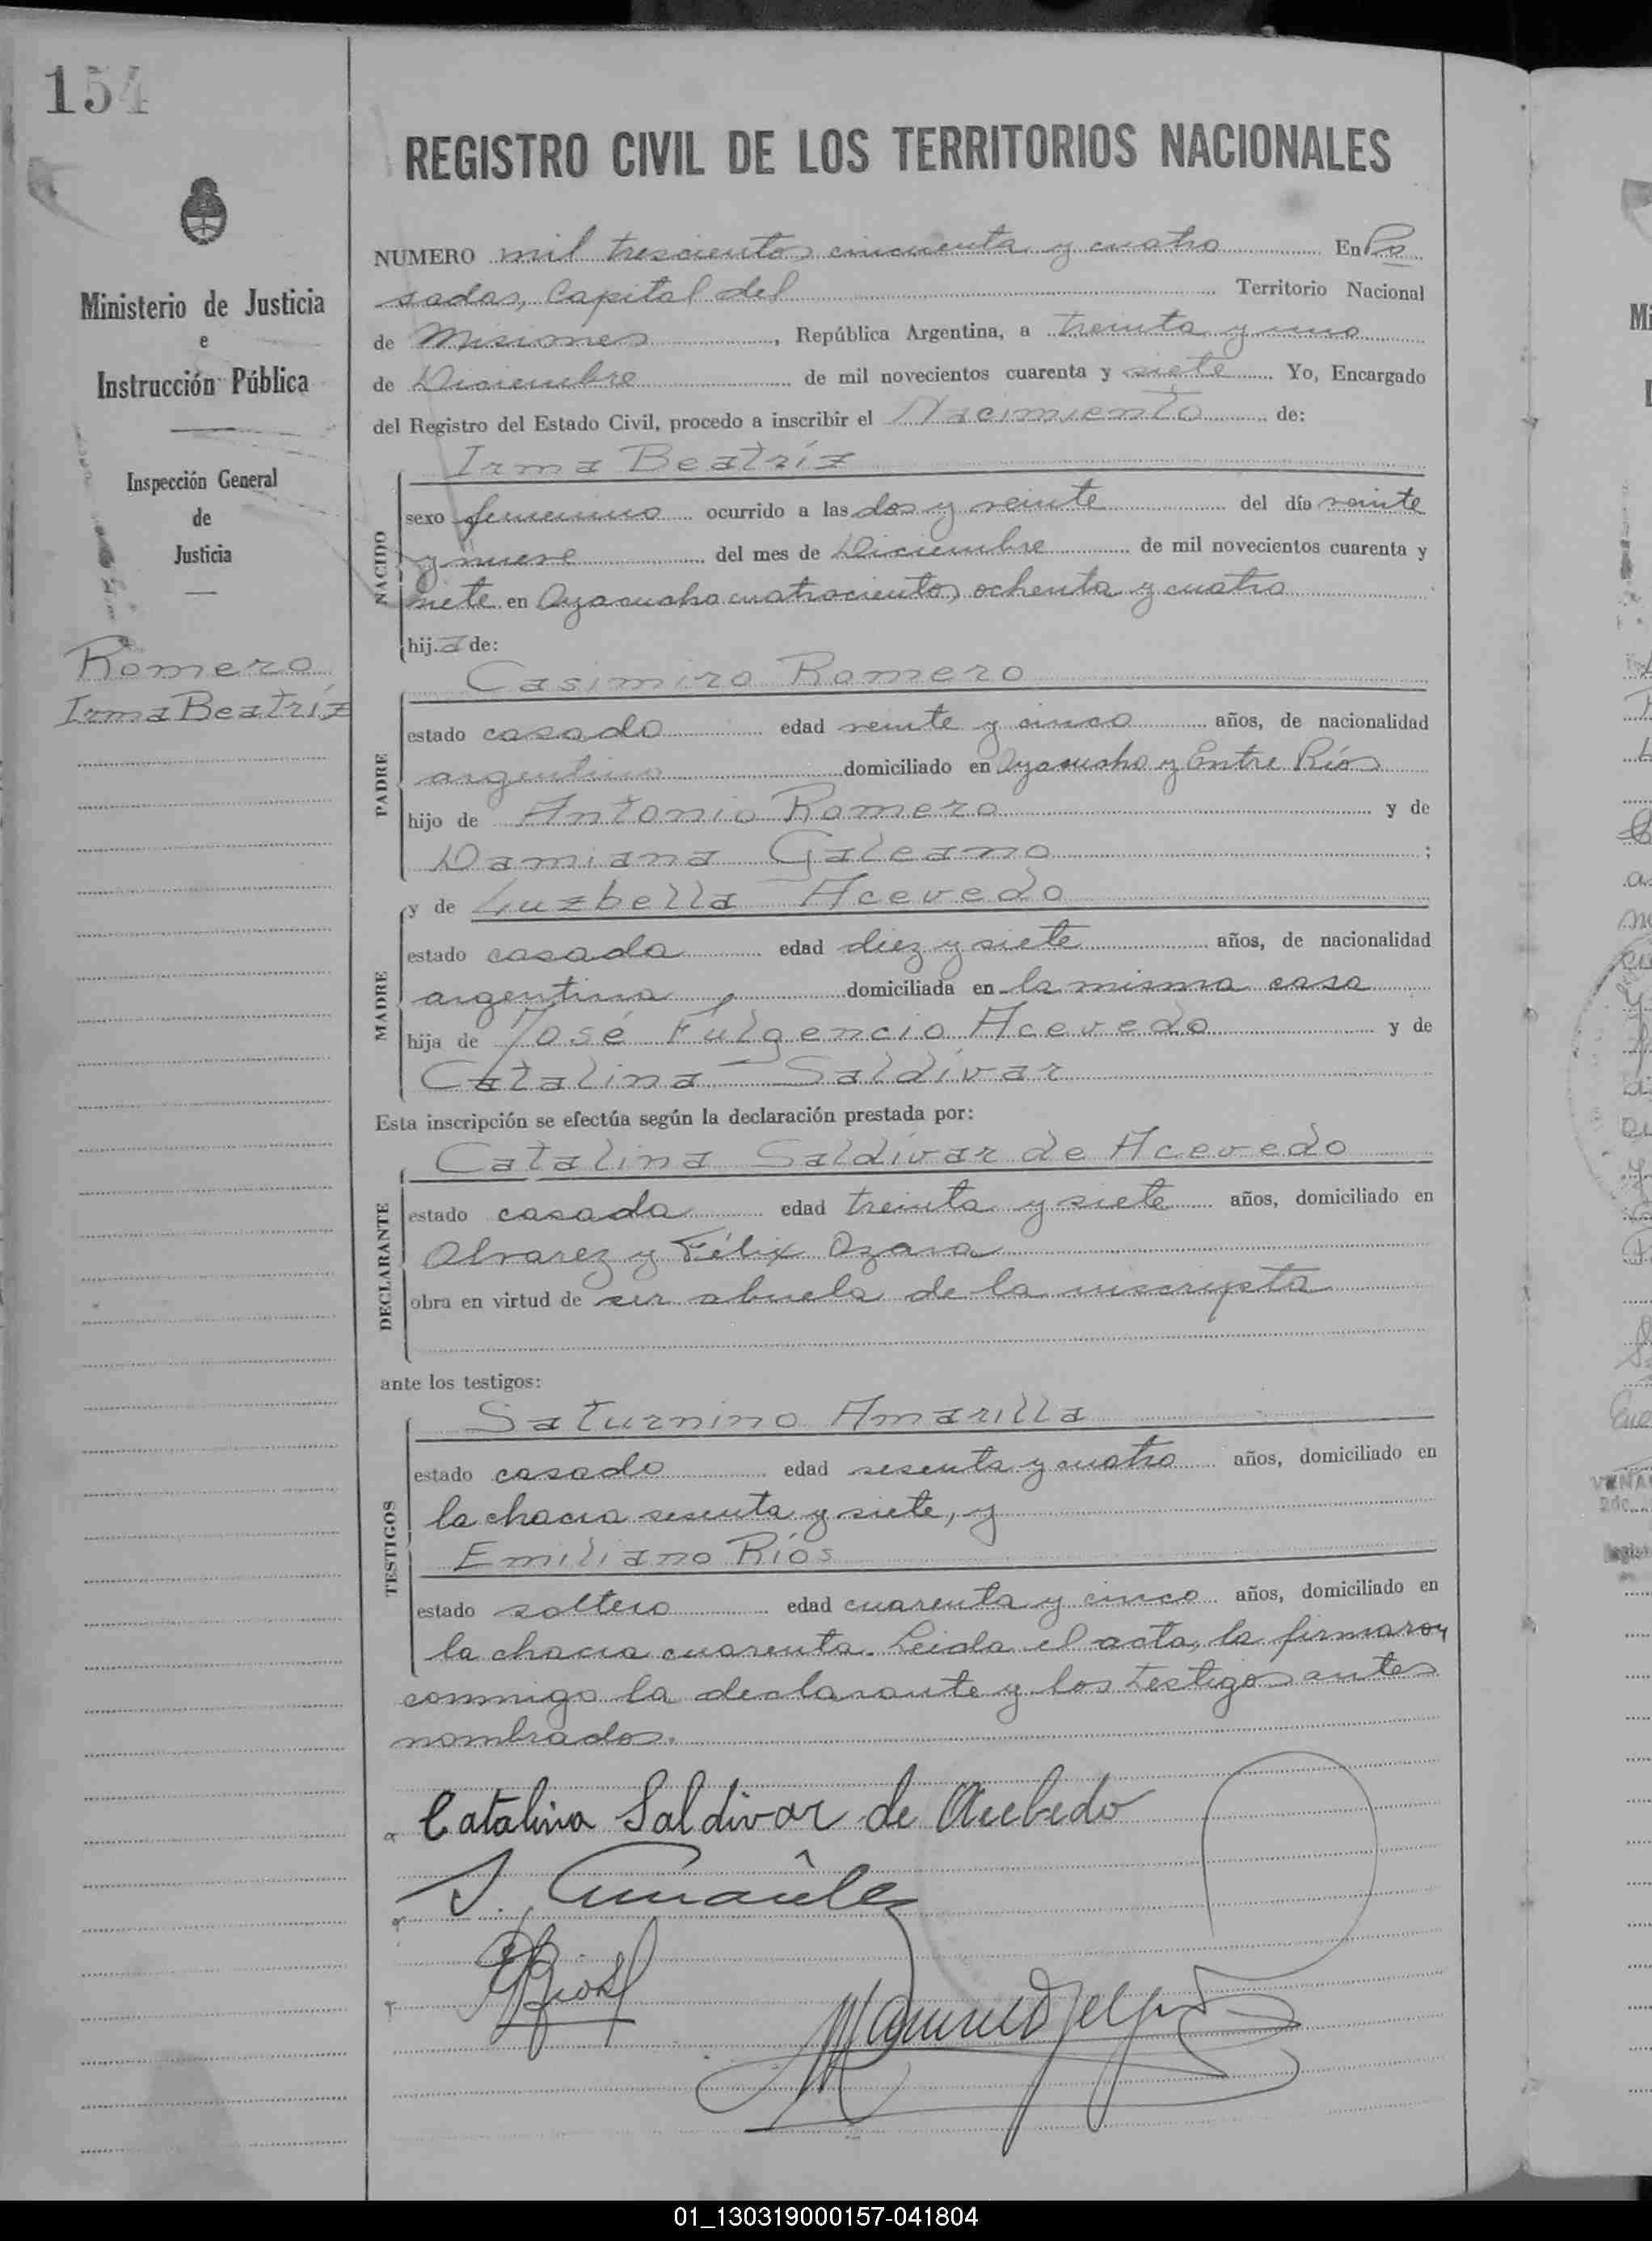 154
REGISTRO CIVIL DE LOS TERRITORIOS NACIONALES
Ministerio de Justicia
e
Instrucción Pública
Inspección General
de
Justicia
Romero
Irma Beatríz
NUMERO mil trescientos cincuenta y cuatro En Po
sadas, Capital del Territorio Nacional
de Misiones, República Argentina, a treinta y uno
de Diciembre de mil novecientos cuarenta y siete Yo, Encargado
del Registro del Estado Civil, procedo a inscribir el Nacimiento de:
Irma Beatríz
NACIDO
sexo femenino ocurrido a las dos y veinte del día veinte
y nueve del mes de Diciembre de mil novecientos cuarenta y
siete en Ayacucho cuatrocientos ochenta y cuatro
hija de:
Casimiro Romero
PADRE
estado casado edad veinte y cinco años, de nacionalidad
argentino domiciliado en Ayacucho y Entre Ríos
hijo de Antonio Romero y de
Damiana Galeano;
MADRE
y de Luzbella Acevedo
estado casada edad diez y siete años, de nacionalidad
argentina domiciliada en la misma casa
hija de José Fulgencio Acevedo y de
Catalina Saldívar
Esta inscripción se efectúa según la declaración prestada por:
Catalina Saldívar de Acevedo
DECLARANTE
estado casada edad treinta y siete años, domiciliado en
Alvarez y Félix Azara
obra en virtud de ser abuela de la inscripta
ante los testigos:
Saturnino Amarilla
TESTIGOS
estado casado edad sesenta y cuatro años, domiciliado en
la chacra sesenta y siete, y
Emiliano Ríos
estado soltero edad cuarenta y cinco años, domiciliado en
la chacra cuarenta. Leida el acta, la firmaron
conmigo la declarante y los testigos antes
nombrados.
Catalina Saldivar de Acebedo
01_130319000157-041804